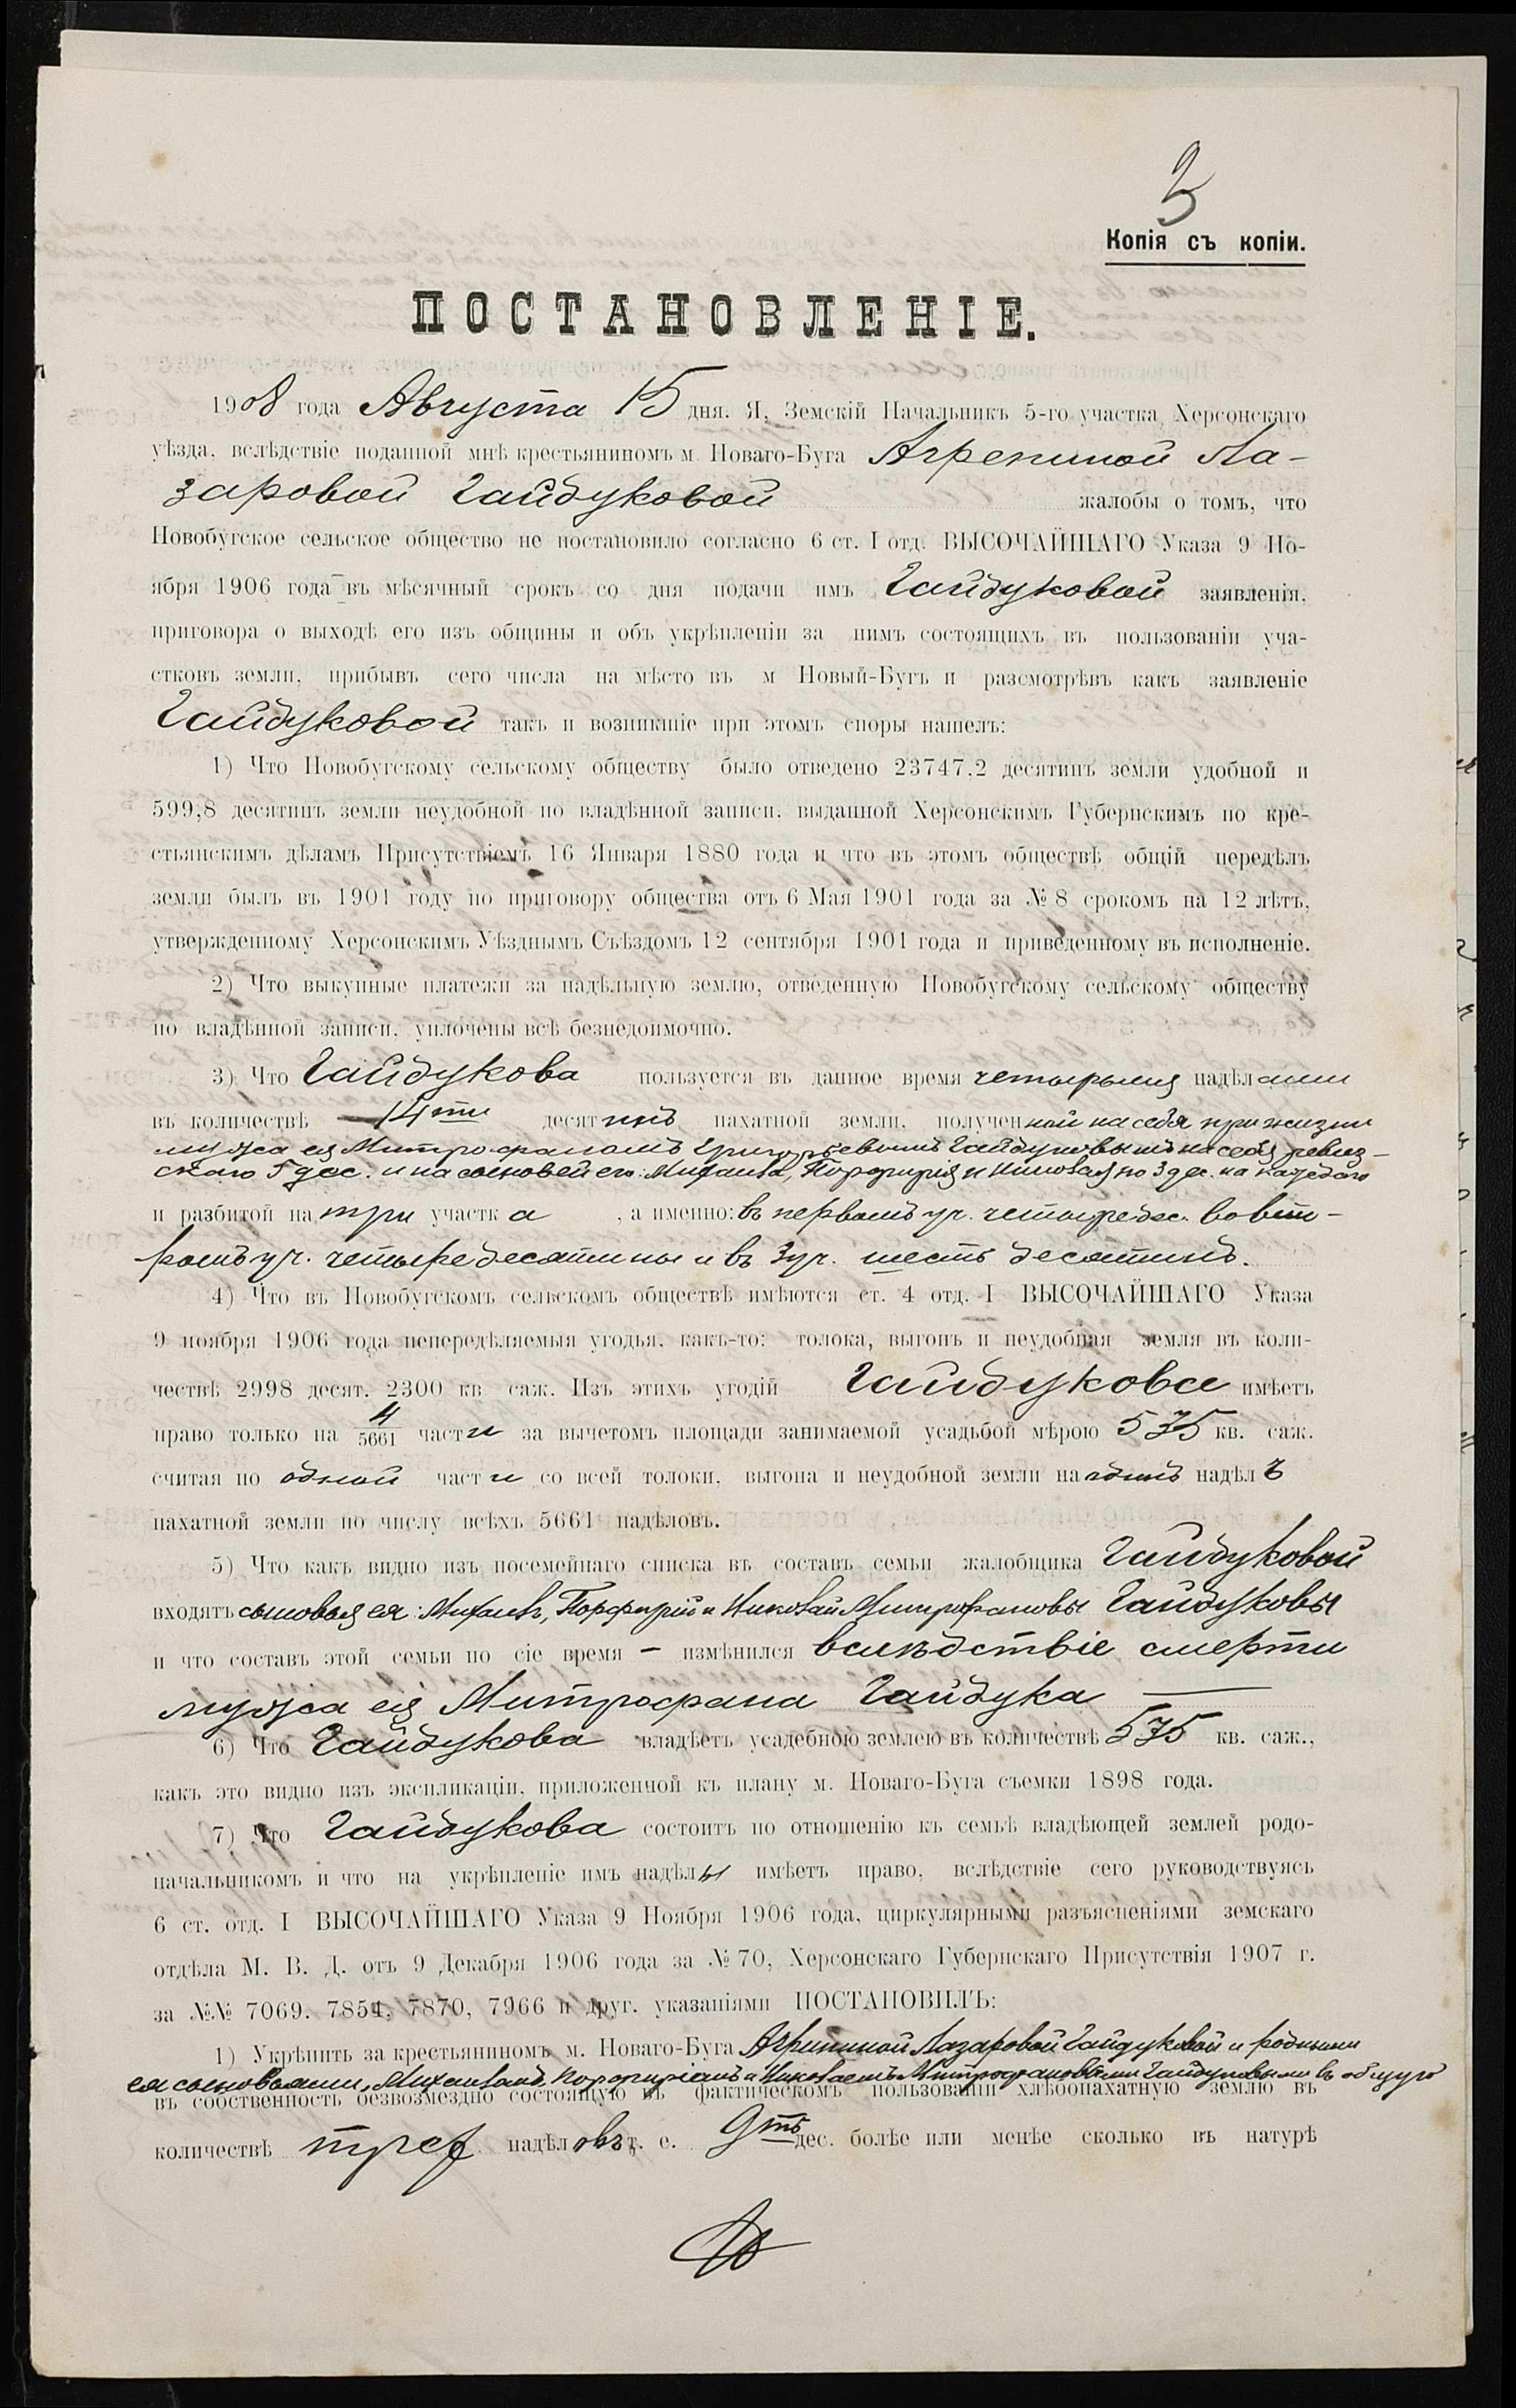 3
Копія съ копіи.
ПОСТАНОВЛЕНІЕ.
1908 года Августа 15 дня. Я, Земскій Начальникъ 5-го участка Херсонскаго
уѣзда, вслѣдствіе поданной мнѣ крестьяниномъ м. Новаго-Буга Агрепиной Ла-
заровой Гайдуковой жалобы о томъ, что
Новобугское сельское общество не постановило согласно 6 ст. I отд. ВЫСОЧАЙШАГО Указа 9 Но-
ября 1906 года въ мѣсячный срокъ со дня подачи имъ Гайдуковой заявленія,
приговора о выходѣ его изъ общины и объ укрѣпленіи за нимъ состоящихъ въ пользованіи уча-
стковъ земли, прибывъ сего числа на мѣсто въ м Новый-Бугъ и разсмотрѣвъ какъ заявленіе
Гайдуковой такъ и возникшіе при этомъ споры нашелъ:
1) Что Новобугскому сельскому обществу было отведено 23747,2 десятинъ земли удобной и
599,8 десятинъ земли неудобной по владѣнной записи, выданной Херсонскимъ Губернскимъ по кре-
стьянскимъ дѣламъ Присутствіемъ 16 Января 1880 года и что въ этомъ обществѣ общій передѣлъ
земли былъ въ 1901 году по приговору общества отъ 6 Мая 1901 года за № 8 срокомъ на 12 лѣтъ,
утвержденному Херсонскимъ Уѣзднымъ Съѣздомъ 12 сентября 1901 года и приведенному въ исполненіе.
2) Что выкупные платежи за надѣльную землю, отведенную Новобугскому сельскому обществу
по владѣнной записи, уплочены всѣ безнедоимочно.
3) Что Гайдукова пользуется въ данное время четырьмя надѣлами
въ количествѣ 14ти десятинъ пахатной земли, полученной на себя при жизни
мужа ея Митрофаномъ Григорьевымъ Гайдуковымъ на себя ревиз-
скаго 5 дес. и на сыновей его: Михаила, Порфирія и Николая по 3 дес. на каждаго
и разбитой на три участка, а именно: въ первомъ уч. четыре дес. во вто-
ромъ уч. четыре десятины и въ 3 уч. шесть десятинъ.
4) Что въ Новобугскомъ сельскомъ обществѣ имѣются ст. 4 отд. I ВЫСОЧАЙШАГО Указа
9 ноября 1906 года непередѣляемыя угодья, какъ-то: толока, выгонъ и неудобная земля въ коли-
чествѣ 2998 десят. 2300 кв саж. Изъ этихъ угодій Гайдукова имѣетъ
право только на 4/5661 части за вычетомъ площади занимаемой усадьбой мѣрою 575 кв. саж.
считая по одной части со всей толоки, выгона и неудобной земли на одинъ надѣлъ
пахатной земли по числу всѣхъ 5661 надѣловъ.
5) Что какъ видно изъ посемейнаго списка въ составъ семьи жалобщика Гайдуковой
входятъ сыновья ея: Михаилъ, Порфирій и Николай Митрофановы Гайдуковы
и что составъ этой семьи по сіе время – измѣнился вслѣдствіе смерти
мужа ея Митрофана Гайдука —
6) Что Гайдукова владѣетъ усадебною землею въ количествѣ 575 кв. саж.,
какъ это видно изъ экспликаціи, приложенной къ плану м. Новаго-Буга съемки 1898 года.
7) Что Гайдукова состоитъ по отношенію къ семьѣ владѣющей землей родо-
начальникомъ и что на укрѣпленіе имъ надѣлы имѣетъ право, вслѣдствіе сего руководствуясь
6 ст. отд. I ВЫСОЧАЙШАГО Указа 9 Ноября 1906 года, циркулярными разъясненіями земскаго
отдѣла М. В. Д. отъ 9 Декабря 1906 года за № 70, Херсонскаго Губернскаго Присутствія 1907 г.
за №№ 7069. 7854, 7870, 7966 и друг. указаніями ПОСТАНОВИЛЪ:
1) Укрѣпить за крестьяниномъ м. Новаго-Буга Агрипиной Лазаровой Гайдуковой и родными
ея сыновьями, Михаиломъ, Порфиріемъ и Николаемъ Митрофановыми Гайдуковыми въ общую
въ собственность безвозмездно состоящую въ фактическомъ пользованіи хлѣбопахатную землю въ
количествѣ трех надѣловъ т. е. 9ть дес. болѣе или менѣе сколько въ натурѣ